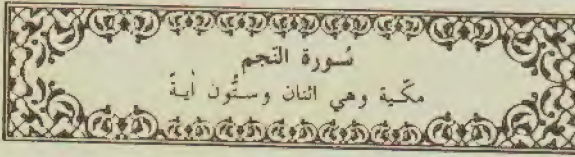 سورة النّجم
مكّية وهي اثنان وستّون أية